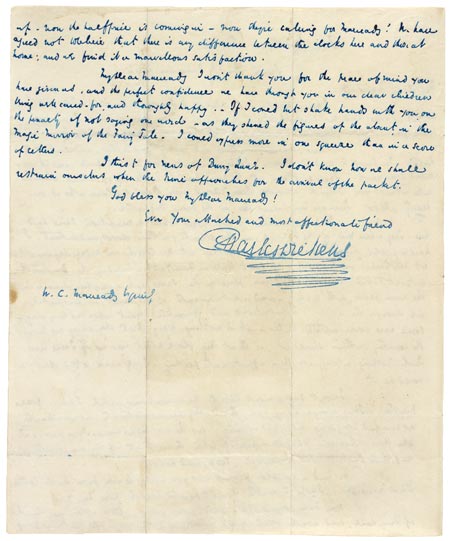 up - now the half price is coming in - now they're calling for Macready! We have
agreed not to believe that there is any difference between the clocks here and those at
home; and we find it a marvellous satisfaction.
My dear Macready I don't thank you for the peace of mind you
have given us, and the perfect confidence we have through you in our dear children
being well cared for, and thoroughly happy.. If I could but shake hands with you
the punctly if not saying one word - as they showed the figures of the absent in the
magic mirror of the Fairy Tale. I could express more in one squeeze than in a score
of letters.
I thirst for news of Drury Lane. I don't know how we shall
restrain ourselves when the time approaches for the arrival of the packet.
God bless you My dear Macready!
Ever Your attached and most affectionate friend
Charles Dickens
W. C. Macready Esquire